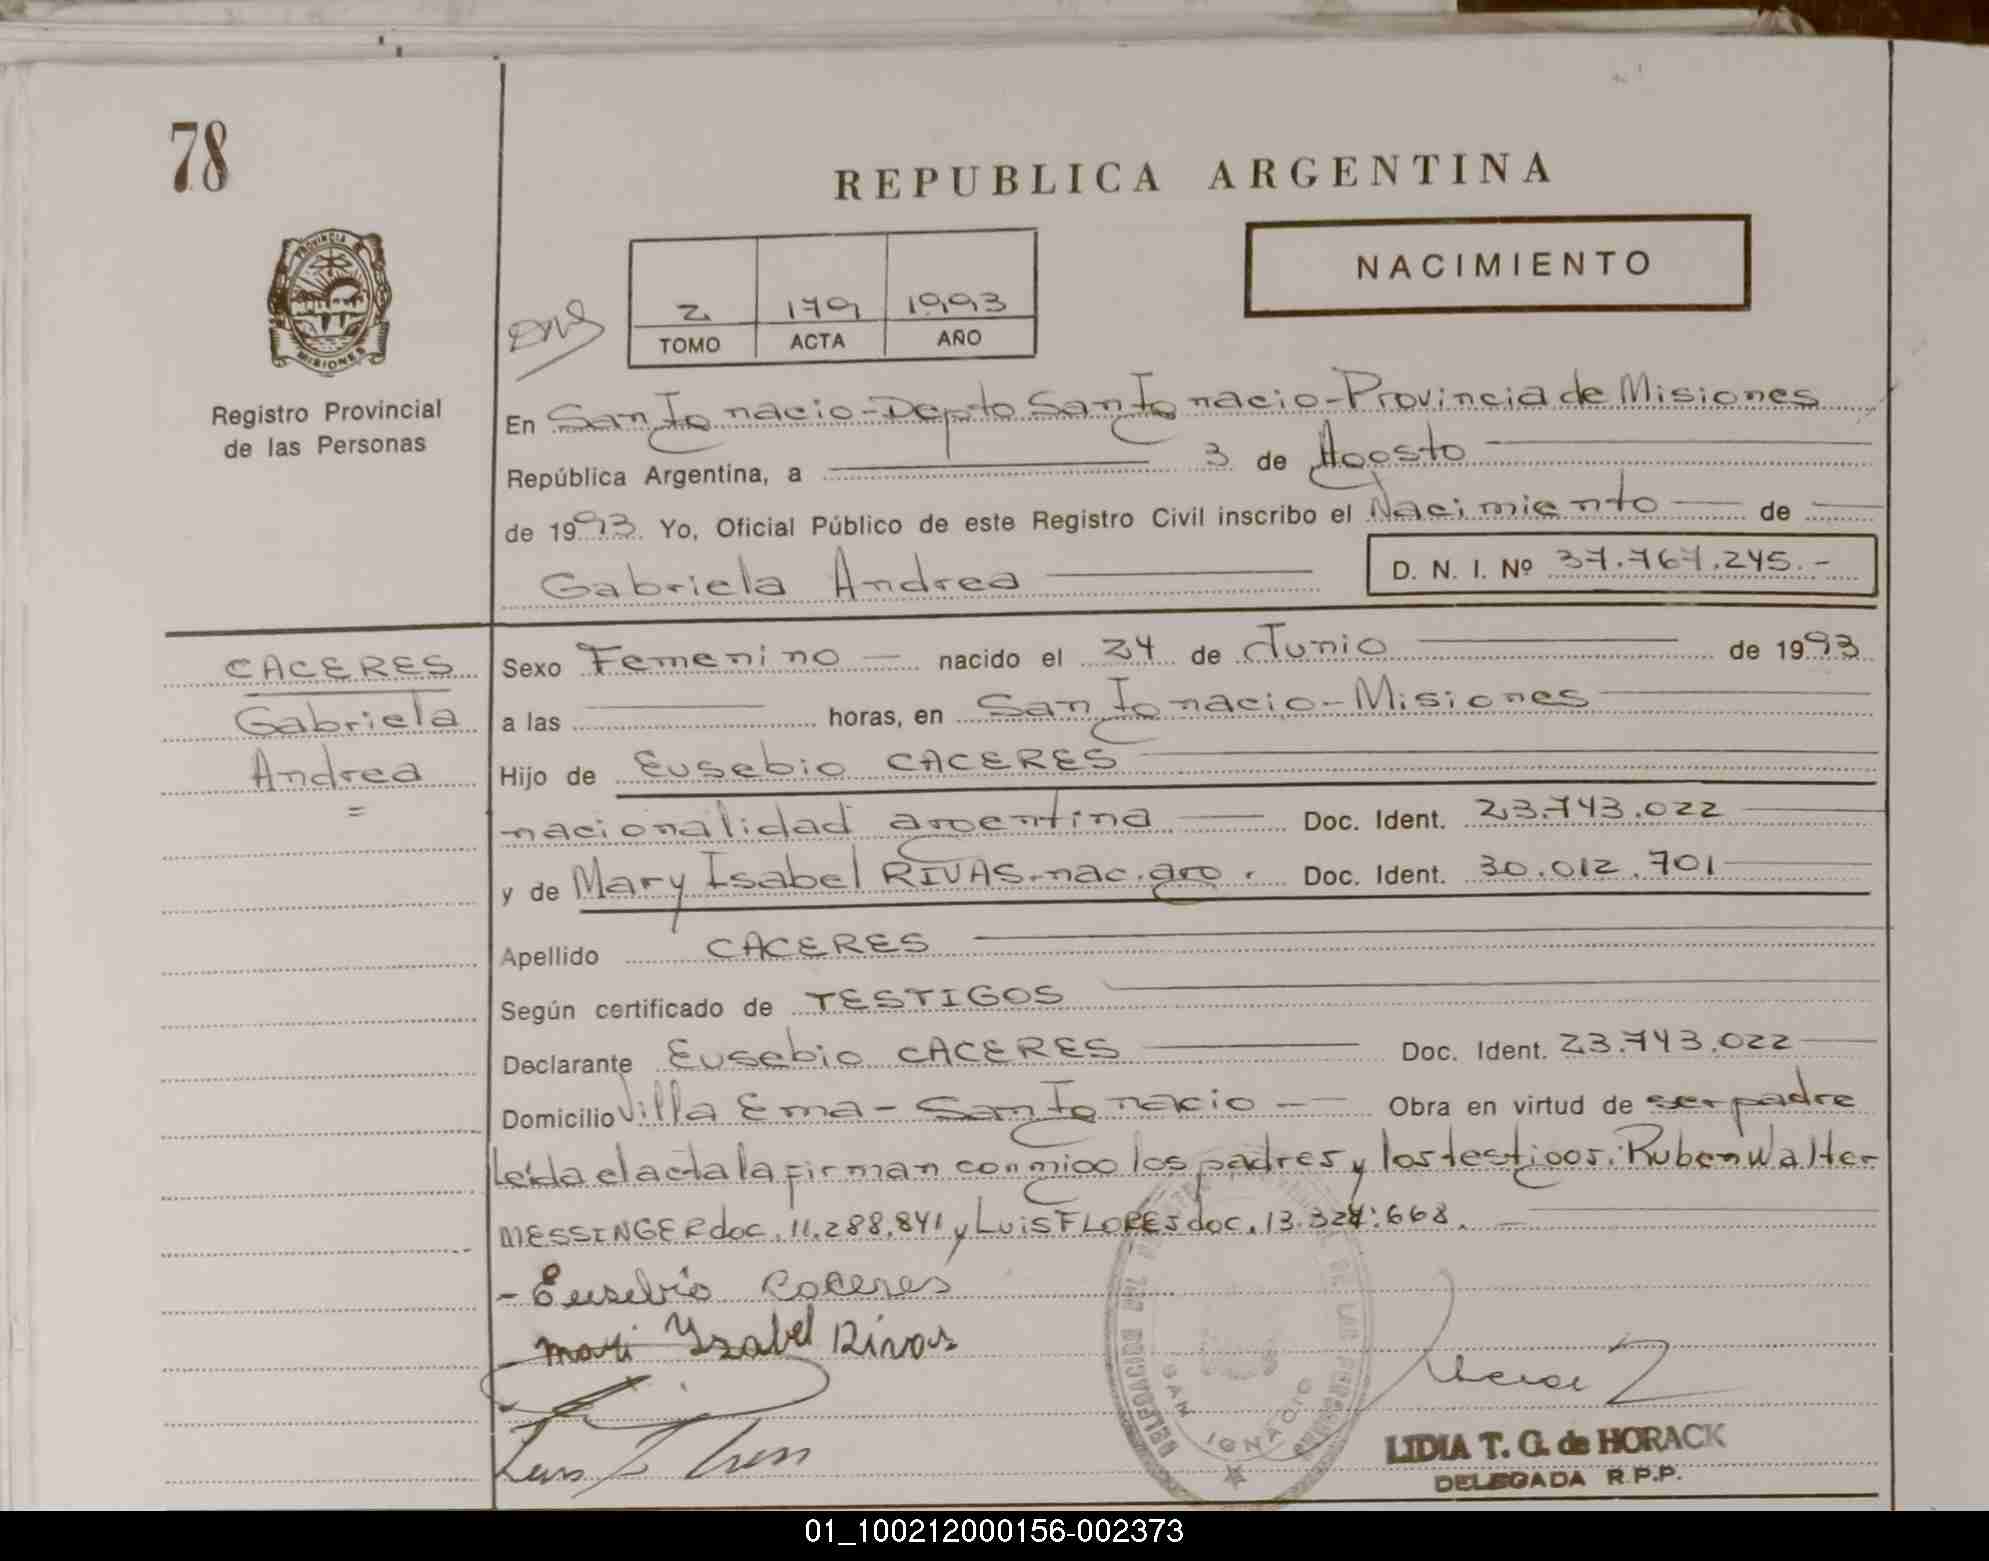 78
REPUBLICA ARGENTINA
NACIMIENTO
2 179 1993
TOMO ACTA AÑO
PROVINCIA
MISIONES
Registro Provincial
de las Personas
En San Ignacio-Depto San Ignacio-Provincia de Misiones
República Argentina, a 3 de Agosto
de 1993. Yo, Oficial Público de este Registro Civil inscribo el Nacimiento de
Gabriela Andrea D. N. I. Nº 37.767.245.-
CACERES
Gabriela
Andrea
=
Sexo Femenino nacido el 24 de Junio de 1993
a las horas, en San Ignacio-Misiones
Hijo de Eusebio CACERES
nacionalidad argentina Doc. Ident. 23.743.022
y de Mary Isabel RIVAS.nac.arg. Doc. Ident. 30.012.701
Apellido CACERES
Según certificado de TESTIGOS
Declarante Eusebio CACERES Doc. Ident. 23.743.022
Domicilio Villa Ema - San Ignacio -- Obra en virtud de ser padre
Leída el acta la firman conmigo los padres y los testigos: Ruben Walter
MESSINGER doc. 11.288.841 y Luis FLORES doc. 13.324.668.
- Eusebio Caceres
mari Yzabel Rivas
SAN IGNACIO
LIDIA T. G. de HORACK
DELEGADA R.P.P.
01_100212000156-002373